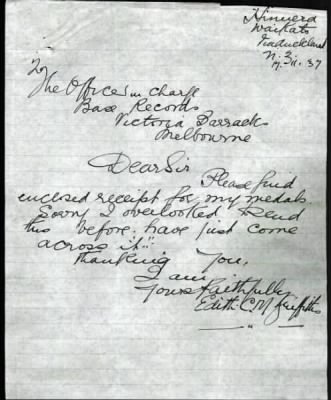 Hinuera
Waikato
N.Z.
11.37
To
The Officer in charge
Base Records
Victoria Barracks
Melbourne
Dear Sir
Please find
enclosed receipt for my medals.
Sorry I overlooked
this before, have just come
across it.
Thanking You,
I am
Yours faithfully
Edith C.M. Griffiths